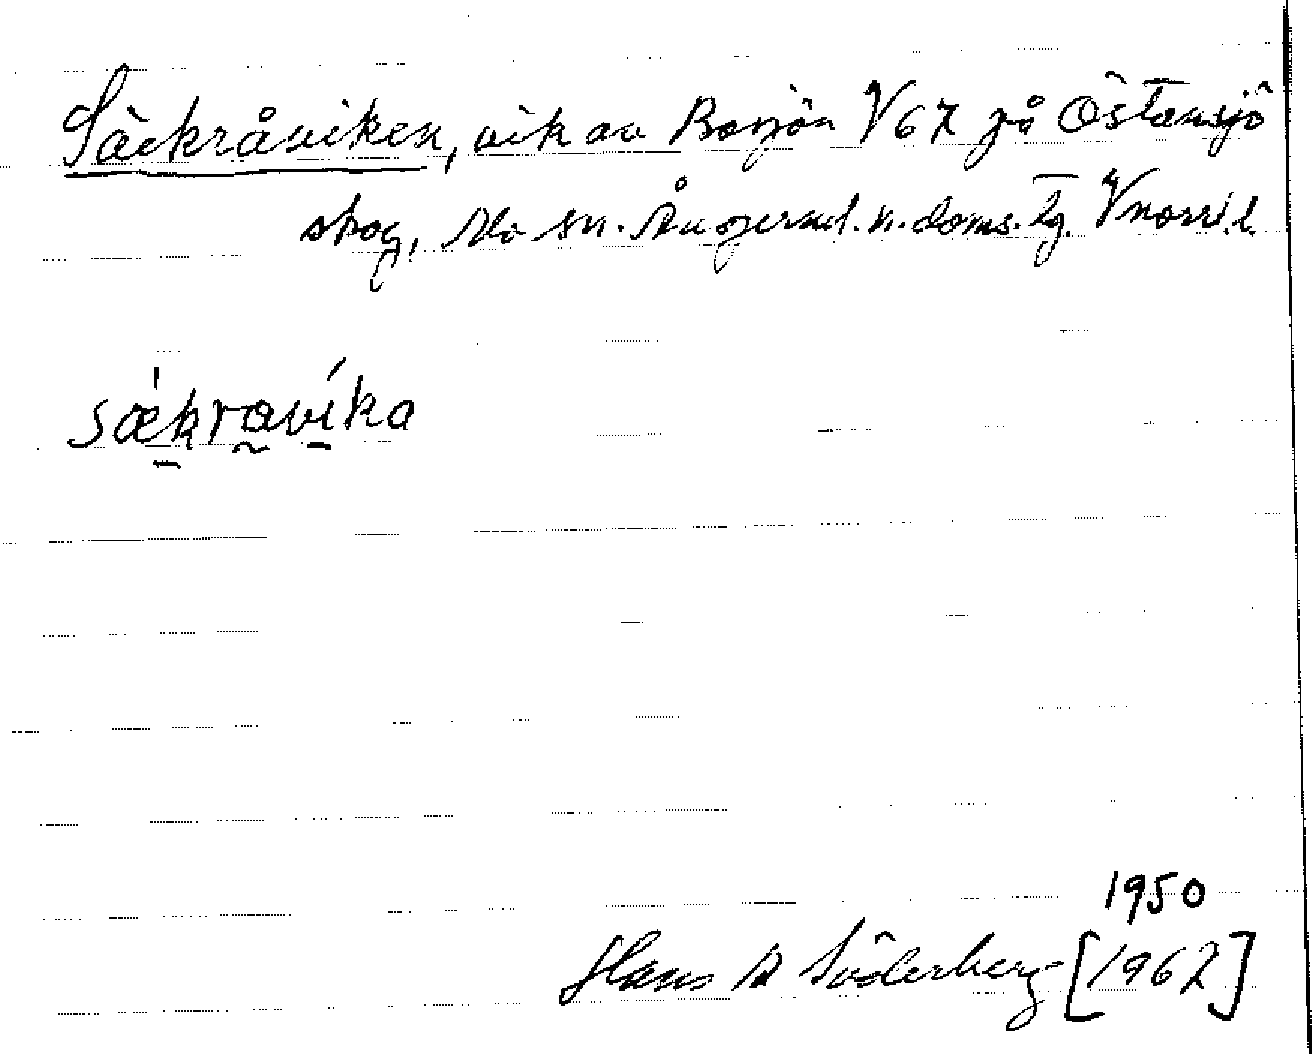 Säckråviken, vik av Borjön V67 på Östansjö
skog, Mo sn. Ångermd. n. doms. Tg. Vnorrl. l.
sækravika
1950
Hans A Söderberg [1962]